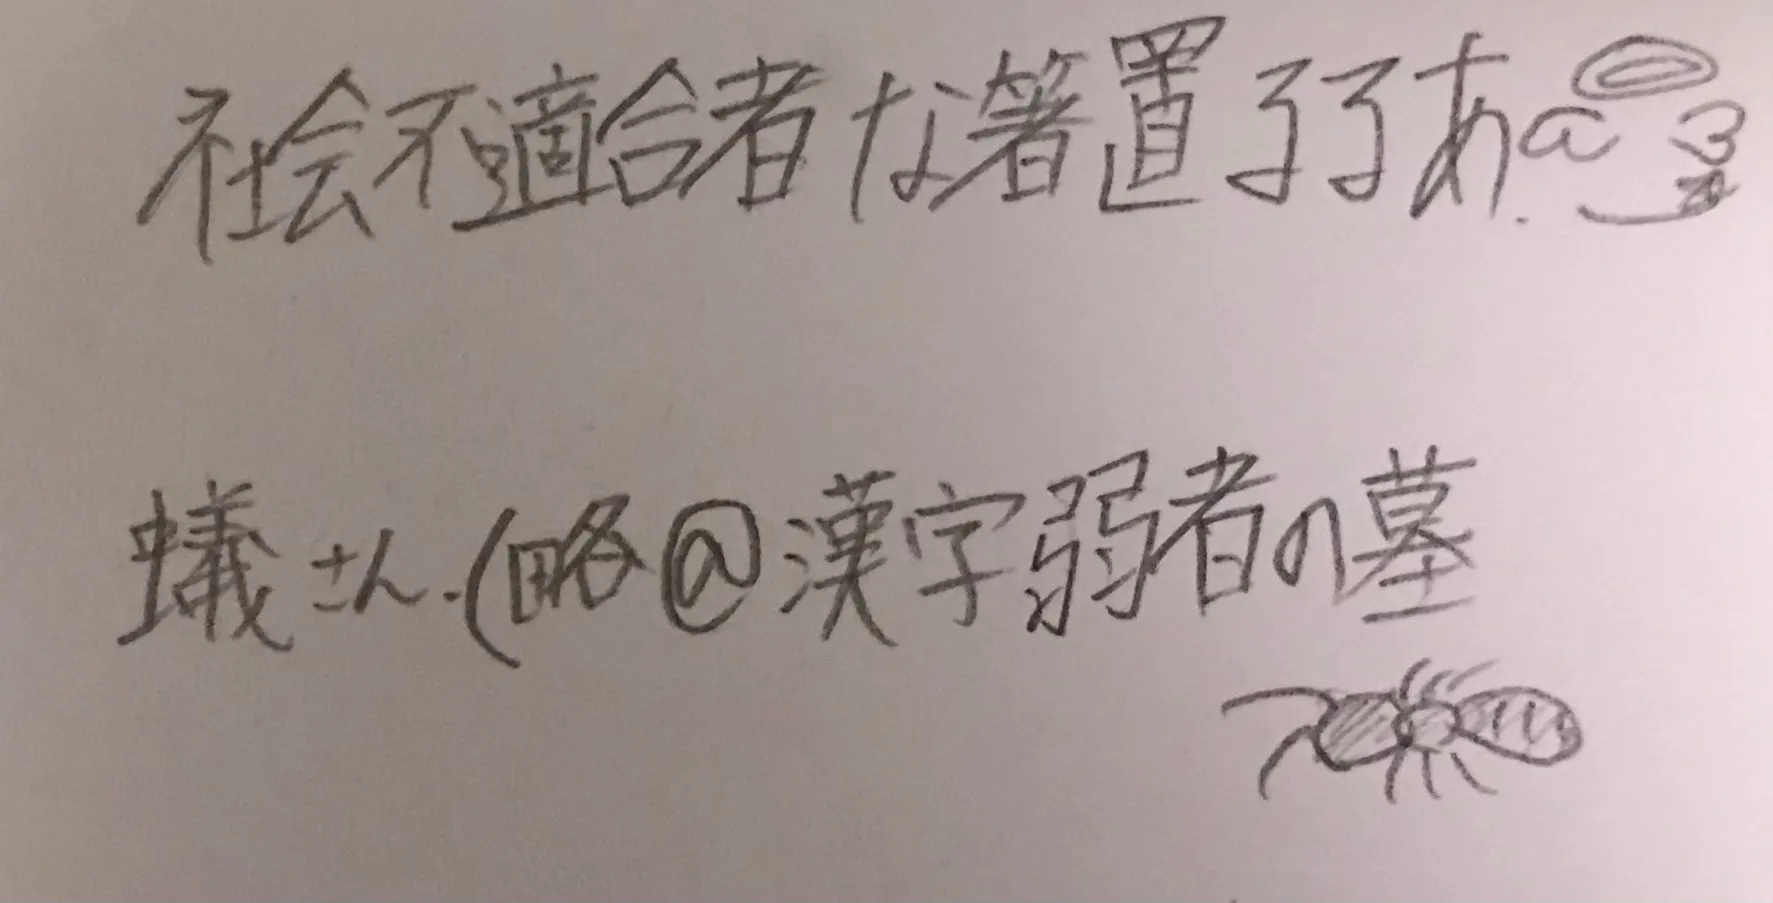 社会不適合者な箸置了了あ.
蟻さん.(略@漢字弱者の墓